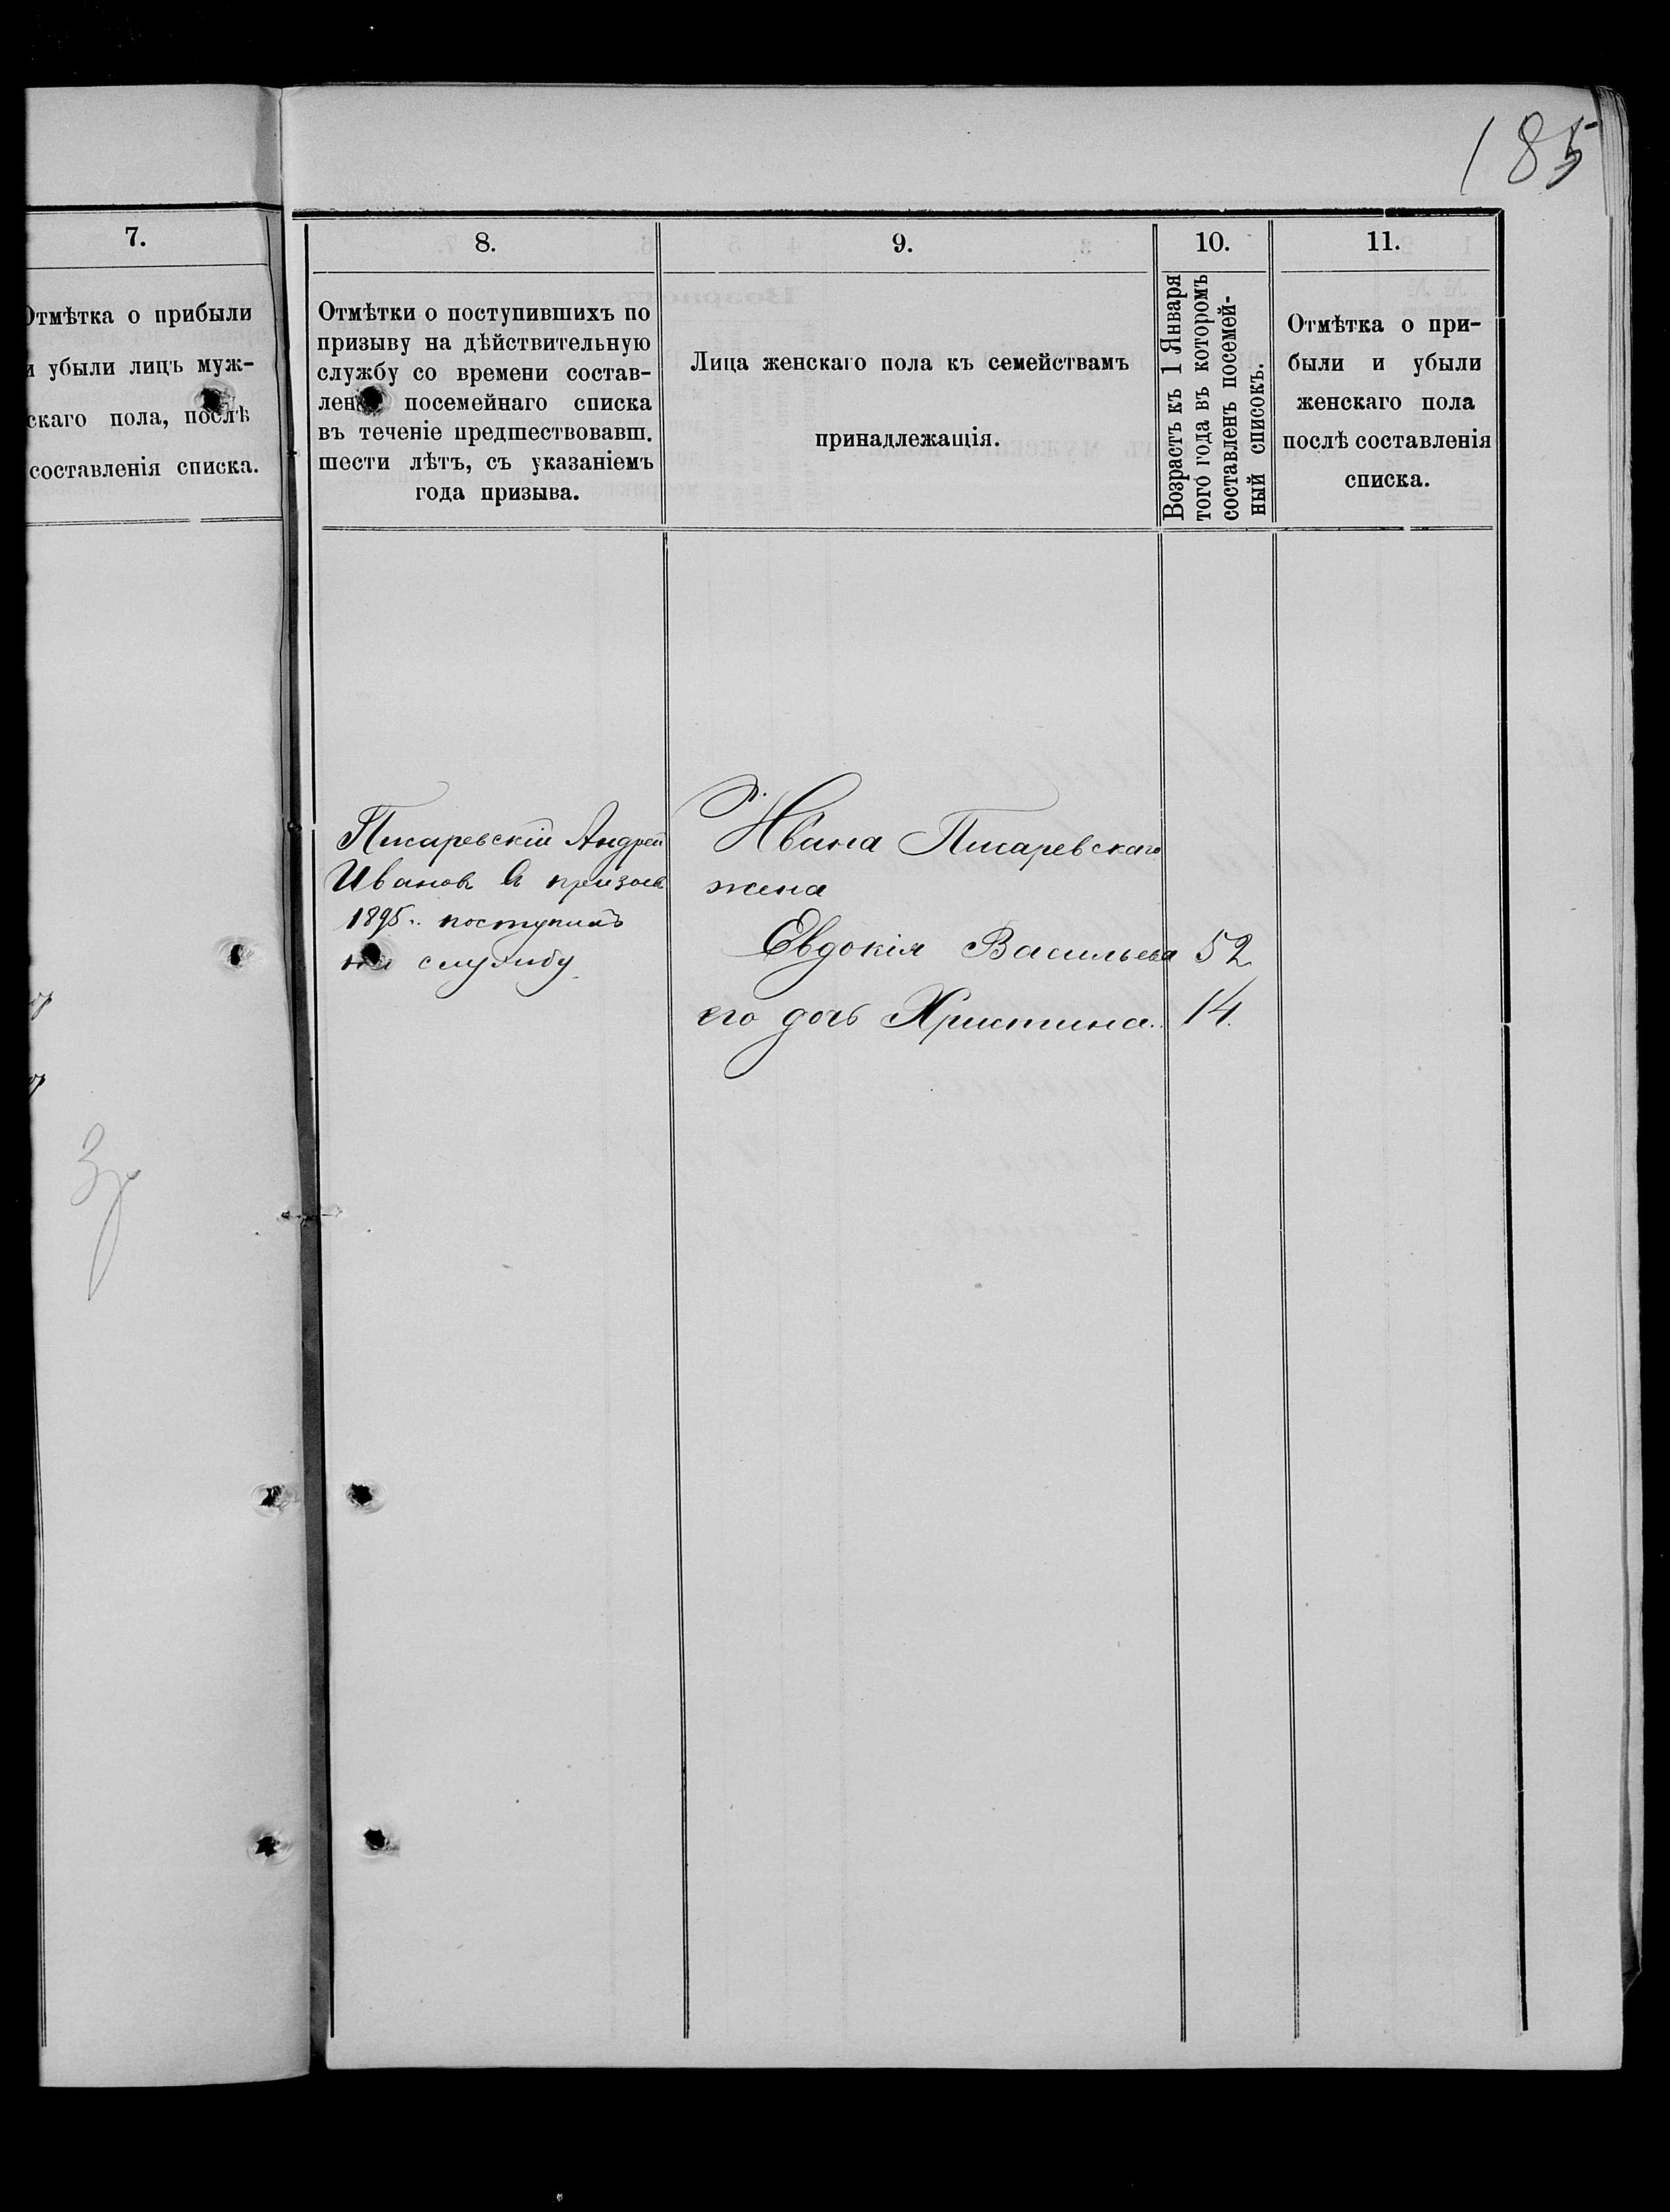 185
7.
Отмѣтка о прибыли
и убыли лицъ муж-
скаго пола, послѣ
составленія списка.
8.
Отмѣтки о поступившихъ по
призыву на дѣйствительную
службу со времени состав-
ленія посемейнаго списка
въ теченіе предшествовавш.
шести лѣтъ, съ указаніемъ
года призыва.
9.
Лица женскаго пола къ семействамъ
принадлежащія.
10.
Возрастъ къ 1 Января
того года въ которомъ
составленъ посемей-
ный списокъ.
11.
Отмѣтка о при-
были и убыли
женскаго пола
послѣ составленія
списка.
Писаревскій Андрей
Ивановъ въ призывъ
1895 г. поступилъ
на службу
Ивана Писаревскаго
жена
Евдокія Васильева 52
его дочь Христина 14.